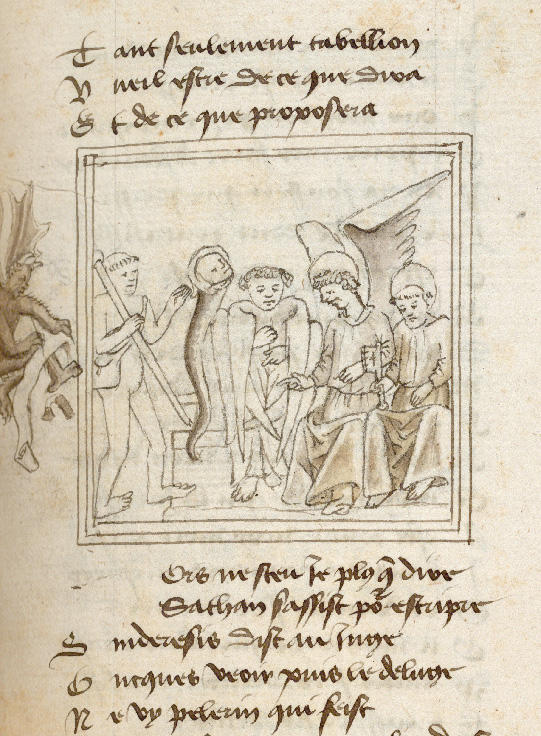 Tant seulement tabellion
Vueil estre de ce que dira
Et de ce que proposera
Ors ne sceu je plus q̄ dire
Sathan sassist po͛ escripre
Sinderesis dist au juge
Oncques veoir puis le deluge
Ne vy pelerin qui feist